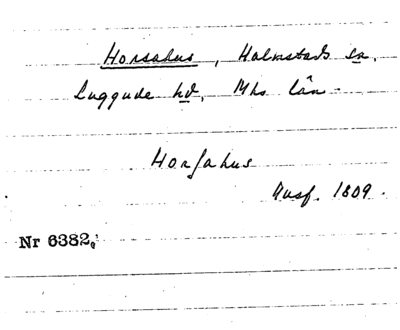 Horsahus, Halmstads sn,
Luggude hd, Mhs län
Horsahus
Ausf. 1809.
Nr 6382,